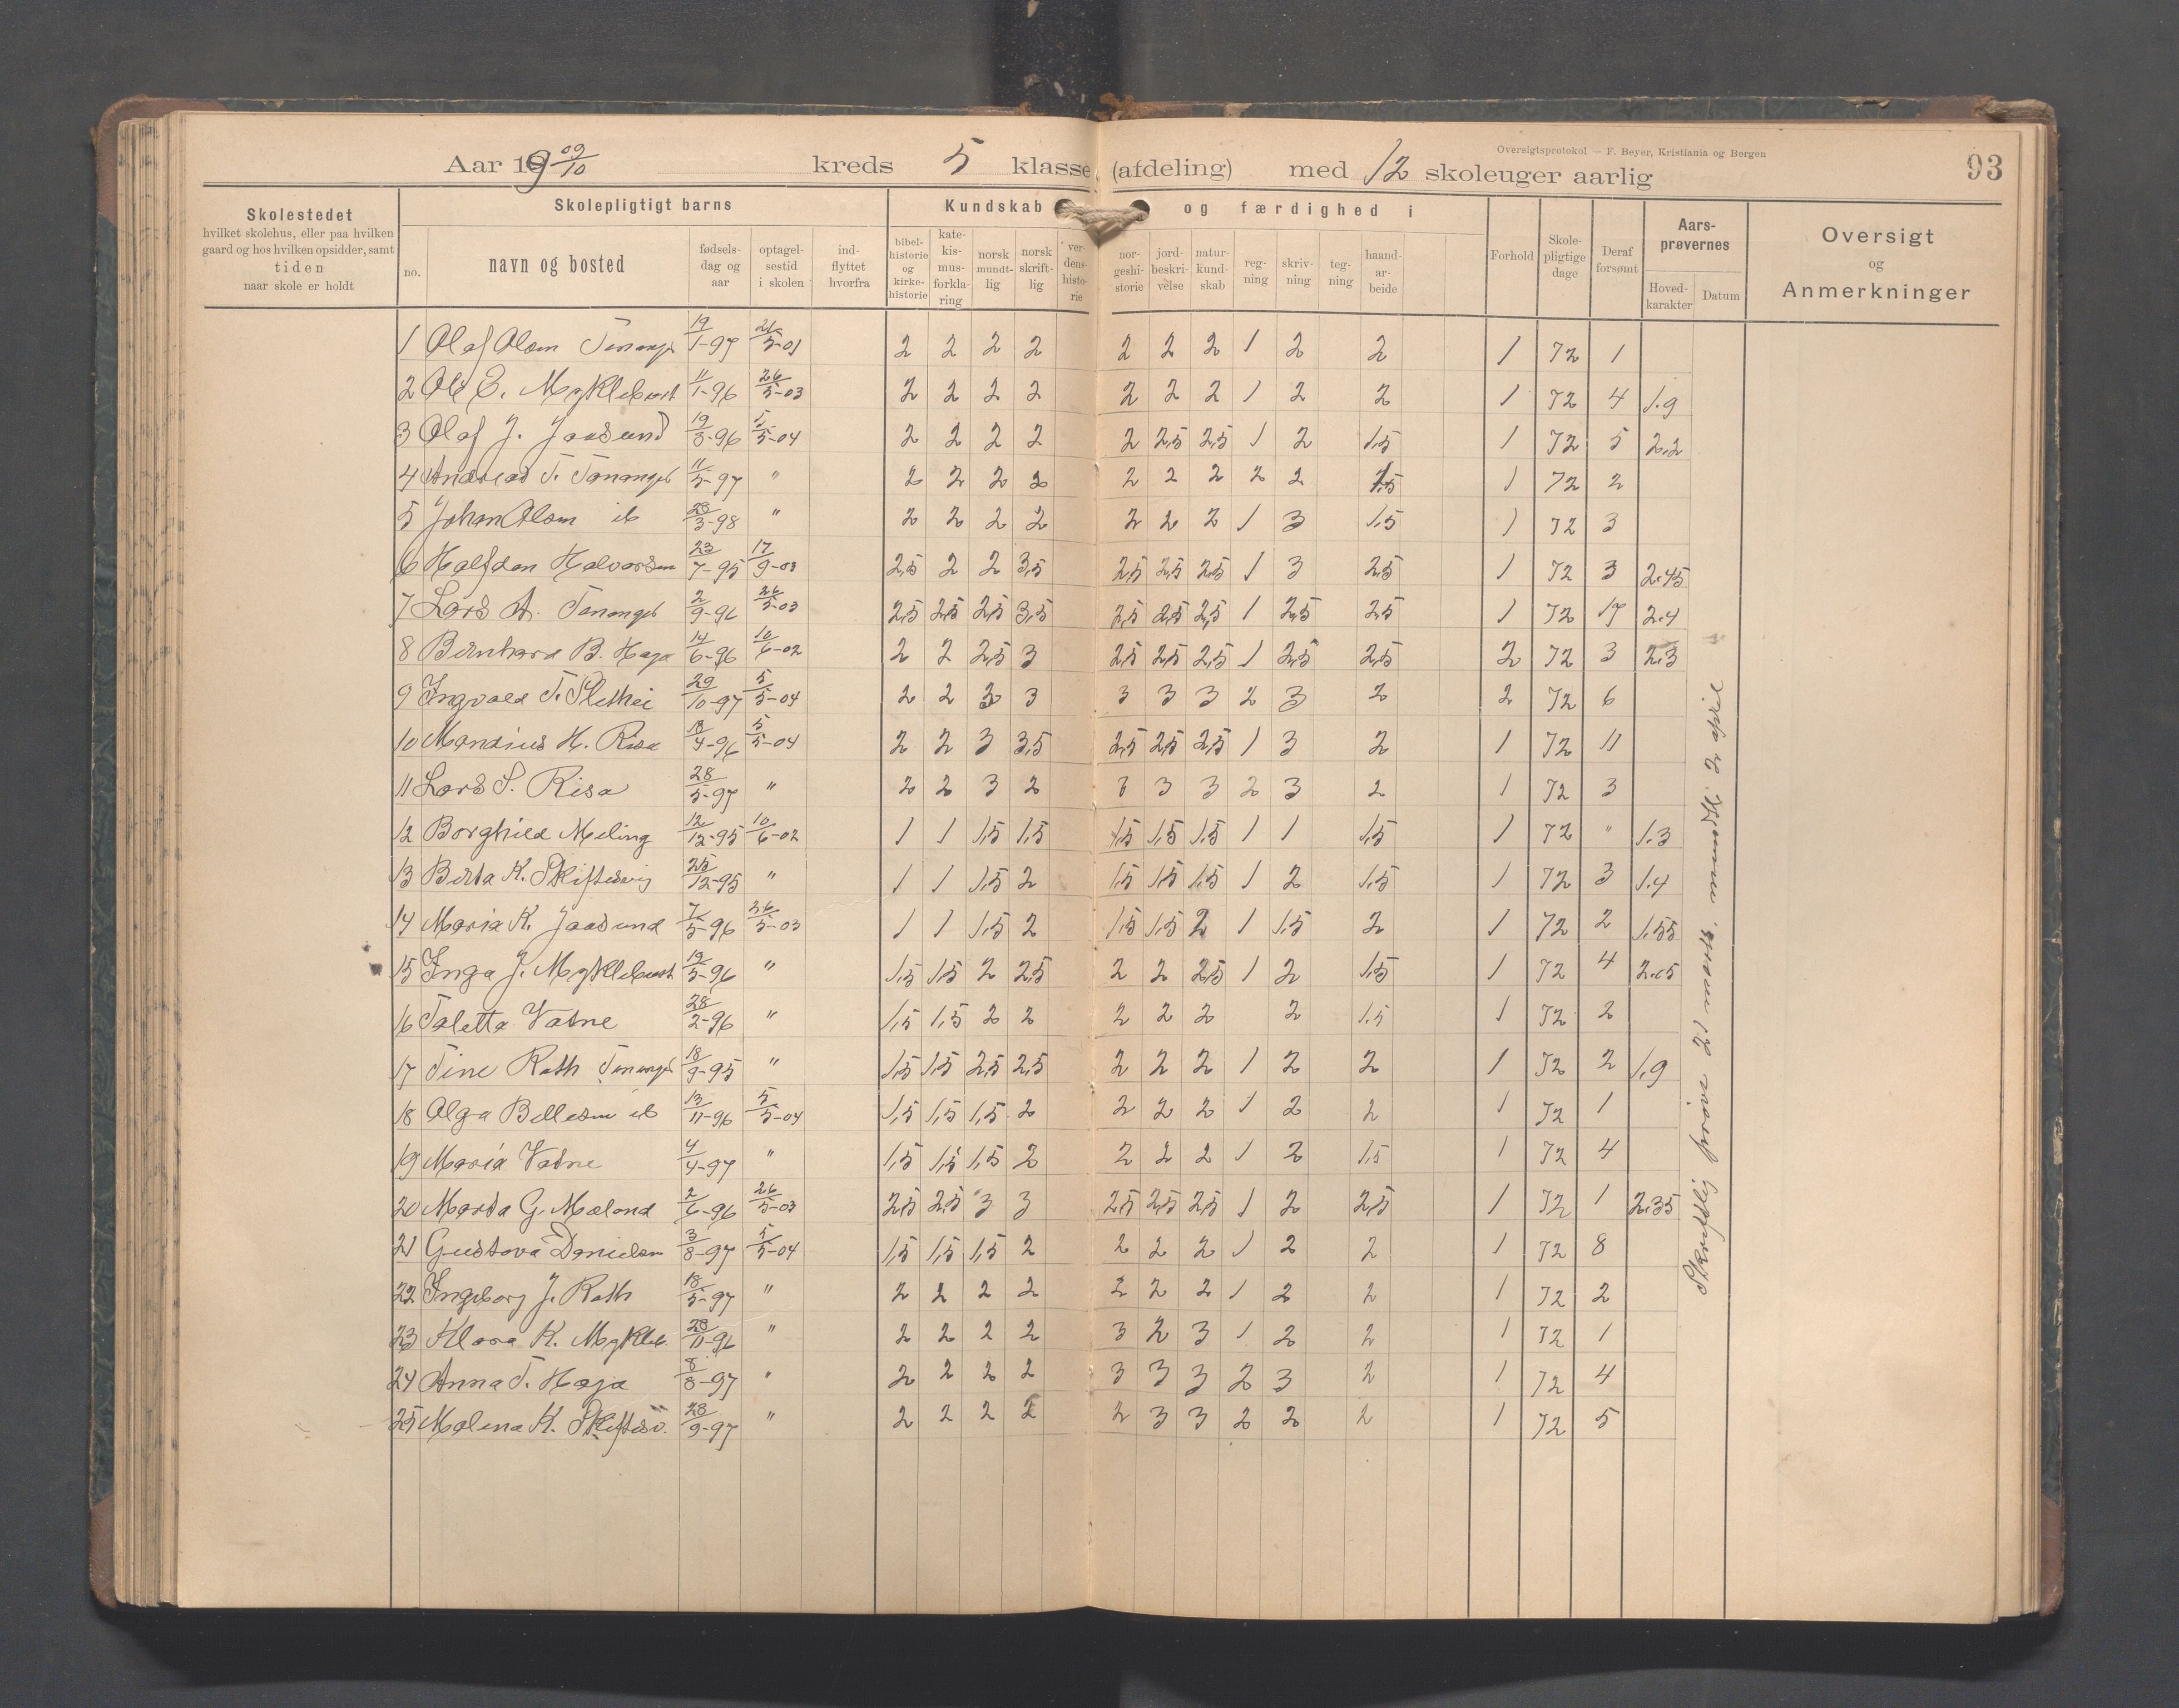 Oversigtsprotokol — F. Beyer, Kristiania og Bergen
Aar 1909/10 kreds 5 klasse (afdeling) med 12 skoleuger aarlig 93
Skolestedet
hvilket skolehus, eller paa hvilken
gaard og hos hvilken opsidder, samt
tiden
naar skole er holdt
Skolepligtigt barns
no.
navn og bosted
fødsels-
dag og
aar
optagel-
sestid
i skolen
ind-
flyttet
hvorfra
Kundskab og færdighed i
bibel-
historie
og
kirke-
historie
kate-
kis-
mus-
forkla-
ring
norsk
mundt-
lig
norsk
skrift-
lig
ver-
dens-
histo-
rie
nor-
geshi-
storie
jord-
beskri-
velse
natur-
kund-
skab
reg-
ning
skriv-
ning
teg-
ning
haand-
ar-
beide
Forhold
Skole-
pligtige
dage
Deraf
forsømt
Aars-
prøvernes
Hoved-
karakter
Datum
Oversigt
og
Anmerkninger
1 Olaf Olsen 19/1-97 2 2 2 2 2 2 2 1 2 2 1 72 1
2 Ole E. Myklebust 11/1-96 26/5-03 2 2 2 2 2 2 2 1 2 2 1 72 4 1.9
3 Olaf J. Jaasund 19/3-96 5/5-04 2 2 2 2 2 2,5 2,5 1 2 1,5 1 72 5 2.2
4 Andreas T. Tananger 11/5-97 " 2 2 2 2 2 2 2 2 2 1,5 1 72 2
5 Johan Olsen 28/3-98 " 2 2 2 2 2 2 2 1 3 1,5 1 72 3
6 Halfdan Halvorsen 23/7-95 17/9-03 2,5 2 2 3,5 2,5 2,5 2,5 1 3 2,5 1 72 3 2.45
7 Lars A. Tananger 2/9-96 26/5-03 2,5 2,5 2,5 3,5 2,5 2,5 2,5 1 2,5 2,5 1 72 17 2.4
8 Bernhard B. Haga 14/6-96 10/6-02 2 2 2,5 3 2,5 2,5 2,5 1 2,5 2,5 2 72 3 2.3
9 Ingvald T. Slethei 29/10-97 5/5-04 2 2 3 3 3 3 3 2 3 2 2 72 6
10 Mandius H. Risa 18/4-96 5/5-04 2 2 3 3,5 2,5 2,5 2,5 1 3 2 1 72 11
11 Lars S. Risa 28/5-97 " 2 2 3 2 3 3 3 2 3 2 1 72 3
12 Borghild Meling 12/12-95 10/6-02 1 1 1,5 1,5 1,5 1,5 1,5 1 1 1,5 1 72 " 1.3
13 Berta K. Skiftesvig 25/12-95 " 1 1 1,5 2 1,5 1,5 1,5 1 2 1,5 1 72 3 1.4
14 Maria K. Jaasund 7/5-96 26/5-03 1 1 1,5 2 1,5 1,5 2 1 1,5 2 1 72 2 1.55
15 Inga J. Myklebust 19/5-96 " 1,5 1,5 2 2,5 2 2 2,5 1 2 1,5 1 72 4 2.05
16 Taletta Vatne 28/2-96 " 1,5 1,5 2 2 2 2 2 2 1,5 1 72 2
17 Tine Roth 18/9-95 " 1,5 1,5 2,5 2,5 2 2 2 1 2 2 1 72 2 1,9
18 Olga Bellesen 13/11-96 5/5-04 1,5 1,5 1,5 2 2 2 2 1 2 2 1 72 1
19 Maria Vatne 4/4-97 " 1,5 1,5 1,5 2 2 2 2 1 2 1,5 1 72 4
20 Marta G. Mæland 2/6-96 26/5-03 2,5 2,5 3 3 2,5 2,5 2,5 1 2 2,5 1 72 1 2.35
21 Gustava Danielsen 3/8-97 5/5-04 1,5 1,5 1,5 2 2 2 2 1 2 2 1 72 8
22 Ingeborg J. Roth 18/5-97 " 2 2 2 2 2 2 2 1 2 2 1 72 2
23 Klara K. Mykleb. 28/11-96 " 2 2 2 2 3 2 3 1 2 2 1 72 1
24 Anna T. Haga 8/8-97 " 2 2 2 2 3 3 3 2 3 2 1 72 4
25 Malena K. Skiftesv. 28/9-97 " 2 2 2 2 2 3 3 2 2 2 1 72 5
Skriftlig prøve 21 marts, mundtl. 2 april